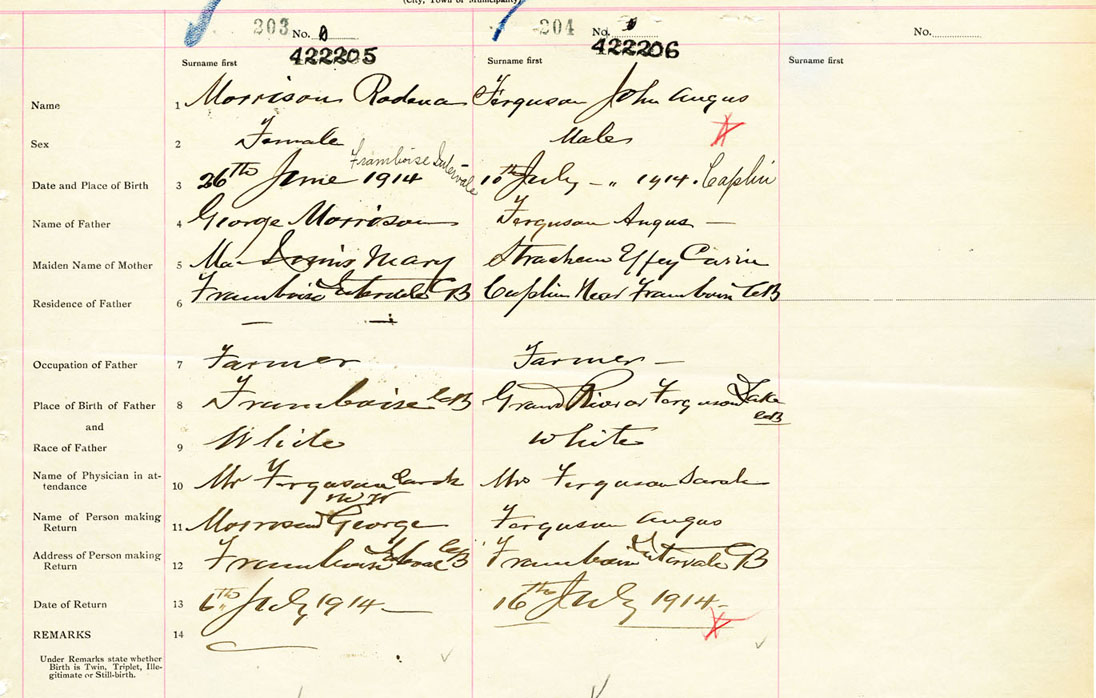 (City, Town or Municipality)
203 No. 0 204 No. 0 No.
422205 422206
Surname first Surname first Surname first
Name 1 Morrison Rodena Ferguson John Angus
Sex 2 Female Male
Date and Place of Birth 3 26th June 1914 Framboise Intervale 10th July - " 1914. Caplin
Name of Father 4 George Morrison Ferguson Angus -
Maiden Name of Mother 5 Mary Strachan Effey
Residence of Father 6 Framboise Intervale CB Caplin Near Framboise CB
Occupation of Father 7 Farmer Farmer -
Place of Birth of Father 8 Framboise CB Grand River or Ferguson Lake CB
and
Race of Father 9 White White
Name of Physician in at-
tendance 10 Ferguson Sarah Mrs Ferguson Sarah
Name of Person making
Return 11 Morrison George Ferguson Angus
Address of Person making
Return 12 Framboise Intervale CB Framboise Intervale CB
Date of Return 13 6th July 1914 - 16th July 1914 -
REMARKS 14
Under Remarks state whether
Birth is Twin, Triplet, Ille-
gitimate or Still-birth.